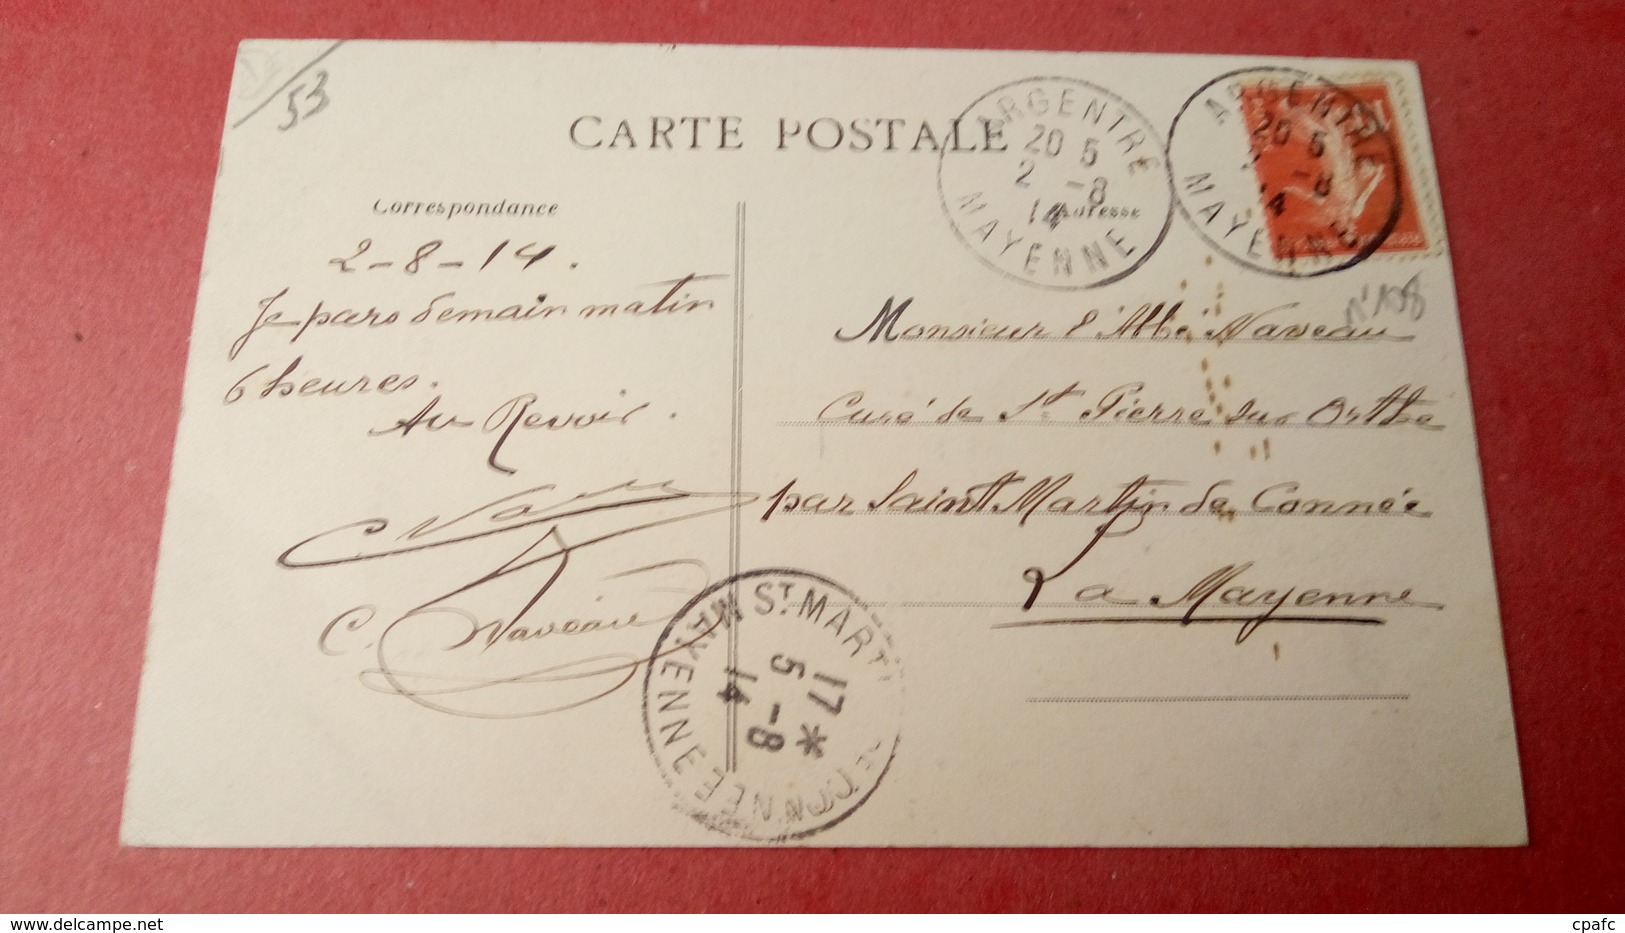 53
CARTE POSTALE
ARGENTRE
20 5
2 -8
14
MAYENNE
ARGENTRE
20 5
2 -8
14
MAYENNE
Correspondance
Adresse
N° 108
2-8-14.
Je pars demain matin
6 heures.
Au Revoir.
C. Naveau
C. Naveau
Monsieur l'Abbé Naveau
Curé de St Pierre sur Orthe
par Saint Martin de Connée
La Mayenne
ST MARTIN DE CONNEE
17 *
5 -8
14
MAYENNE
cpafc